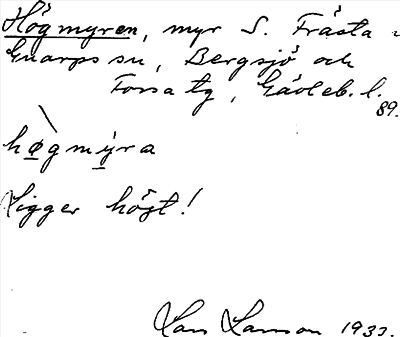 Högmyren, myr S. Frästa i
Gnarps sn, Bergsjö och
Forsa tg, Gävleb. l.
89.
høgmyra
Ligger högt!
Lars Larsson 1933.